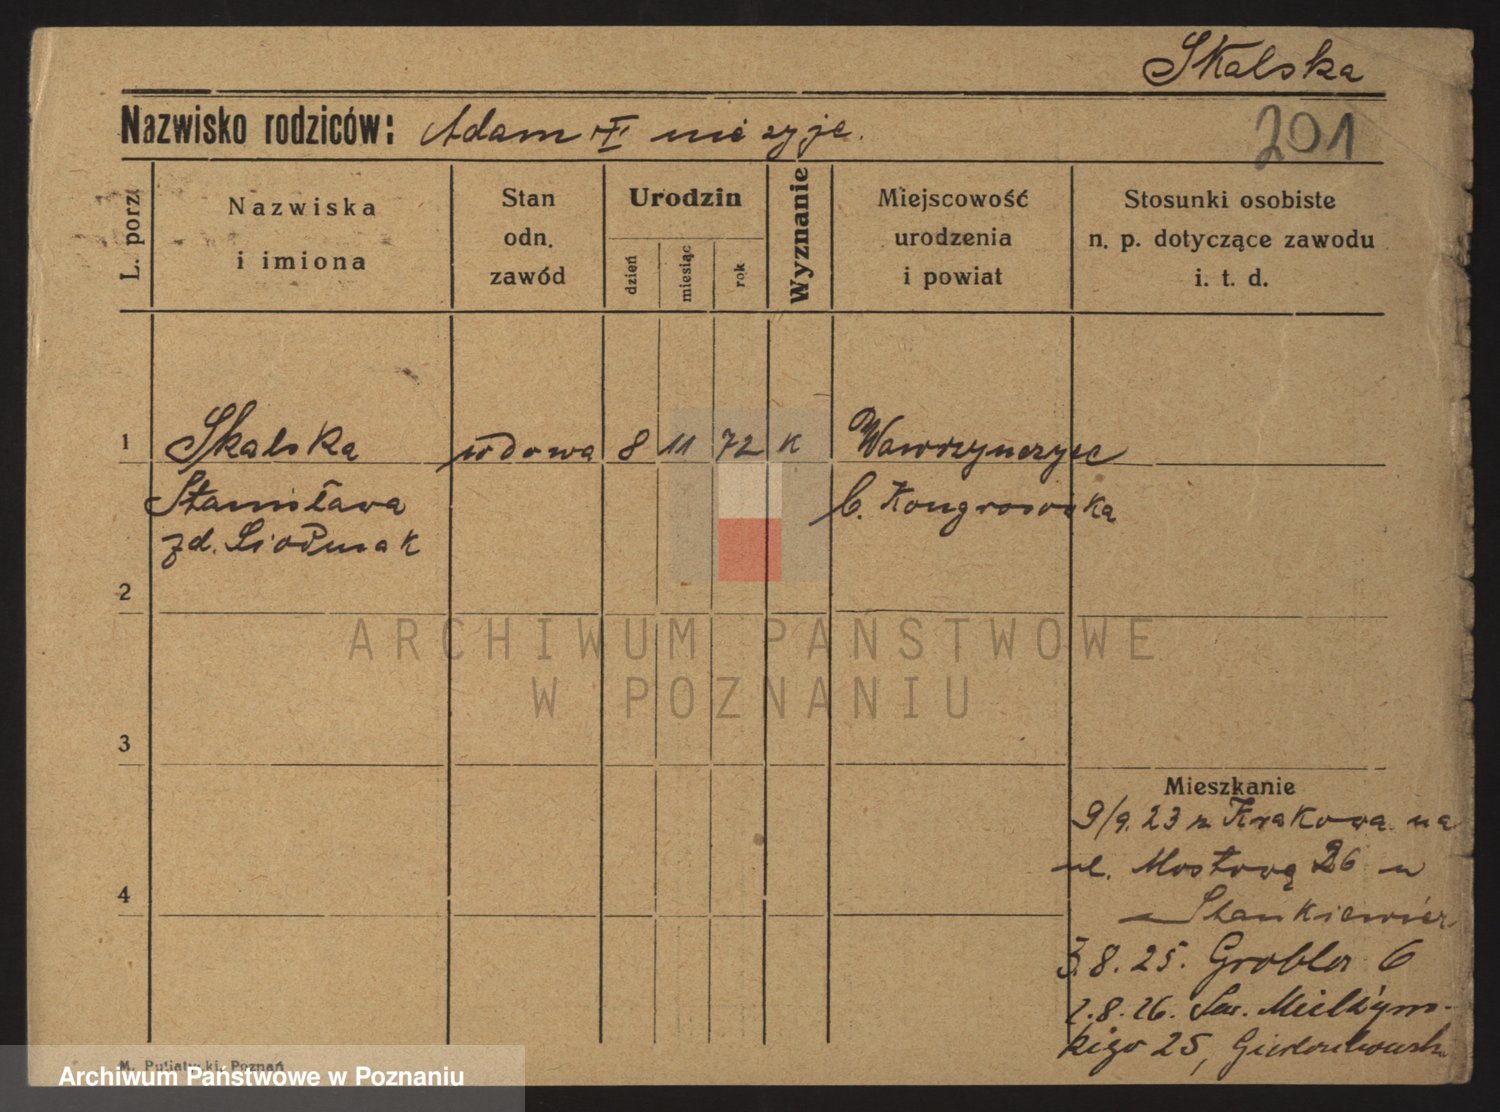 Skalska
Nazwisko rodziców: Adam nie żyje.
201
L. porz.
Nazwiska
i imiona
Stan
odn.
zawód
Urodzin
dzień
miesiąc
rok
Wyznanie
Miejscowość
urodzenia
i powiat
Stosunki osobiste
n. p. dotyczące zawodu
i. t. d.
1 Skalska wdowa 8 11 72 k Wawrzynczyce
Stanisława b. Kongresówka
zd. Siodmak
2
ARCHIWUM PAŃSTWOWE
W POZNANIU
3
Mieszkanie
9/9. 23 z Krakowa na
ul. Mostową 26 u
Stankiewicz
4
3.8.25. Grobla 6
2.8.26. Sew. Mielżyńs-
kiego 25,
M. Putiatycki, Poznań
Archiwum Państwowe w Poznaniu